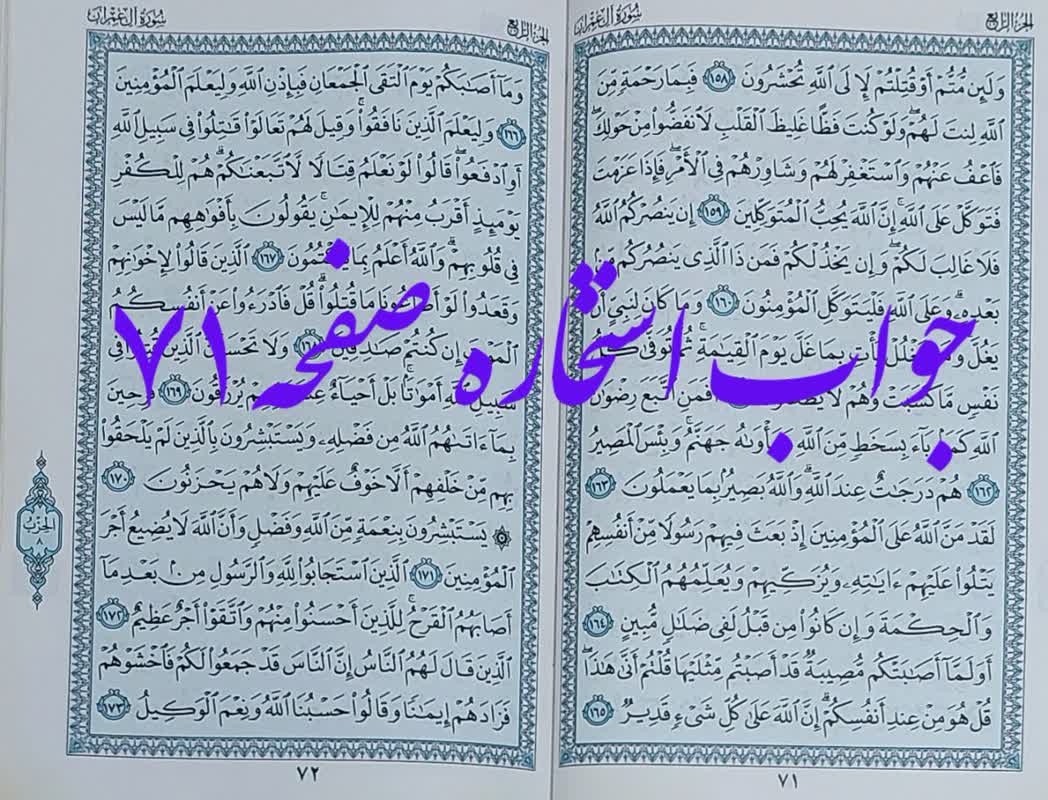 سُورَةُ آلِ عِمْرَان
الجُزْءُ الرَّابِعُ
وَلَئِن مُّتُّمْ أَوْ قُتِلْتُمْ لَإِلَى ٱللَّهِ تُحْشَرُونَ ١٥٨ فَبِمَا رَحْمَةٍ مِّنَ
ٱللَّهِ لِنتَ لَهُمْ وَلَوْ كُنتَ فَظًّا غَلِيظَ ٱلْقَلْبِ لَٱنفَضُّوا۟ مِنْ حَوْلِكَ
فَٱعْفُ عَنْهُمْ وَٱسْتَغْفِرْ لَهُمْ وَشَاوِرْهُمْ فِى ٱلْأَمْرِ فَإِذَا عَزَمْتَ
فَتَوَكَّلْ عَلَى ٱللَّهِ إِنَّ ٱللَّهَ يُحِبُّ ٱلْمُتَوَكِّلِينَ ١٥٩ إِن يَنصُرْكُمُ ٱللَّهُ
فَلَا غَالِبَ لَكُمْ وَإِن يَخْذُلْكُمْ فَمَن ذَا ٱلَّذِى يَنصُرُكُم مِّنۢ
بَعْدِهِۦ وَعَلَى ٱللَّهِ فَلْيَتَوَكَّلِ ٱلْمُؤْمِنُونَ ١٦٠ وَمَا كَانَ لِنَبِىٍّ أَن
يَغُلَّ يَأْتِ بِمَا غَلَّ يَوْمَ ٱلْقِيَٰمَةِ ثُمَّ تُوَفَّىٰ كُلُّ
نَفْسٍ مَّا كَسَبَتْ وَهُمْ لَا يُظْلَمُونَ أَفَمَنِ ٱتَّبَعَ رِضْوَٰنَ
ٱللَّهِ كَمَنۢ بَآءَ بِسَخَطٍ مِّنَ ٱللَّهِ وَمَأْوَىٰهُ جَهَنَّمُ وَبِئْسَ ٱلْمَصِيرُ
١٦٢ هُمْ دَرَجَٰتٌ عِندَ ٱللَّهِ وَٱللَّهُ بَصِيرٌۢ بِمَا يَعْمَلُونَ ١٦٣
لَقَدْ مَنَّ ٱللَّهُ عَلَى ٱلْمُؤْمِنِينَ إِذْ بَعَثَ فِيهِمْ رَسُولًا مِّنْ أَنفُسِهِمْ
يَتْلُوا۟ عَلَيْهِمْ ءَايَٰتِهِۦ وَيُزَكِّيهِمْ وَيُعَلِّمُهُمُ ٱلْكِتَٰبَ
وَٱلْحِكْمَةَ وَإِن كَانُوا۟ مِن قَبْلُ لَفِى ضَلَٰلٍ مُّبِينٍ ١٦٤
أَوَلَمَّآ أَصَٰبَتْكُم مُّصِيبَةٌ قَدْ أَصَبْتُم مِّثْلَيْهَا قُلْتُمْ أَنَّىٰ هَٰذَا
قُلْ هُوَ مِنْ عِندِ أَنفُسِكُمْ إِنَّ ٱللَّهَ عَلَىٰ كُلِّ شَىْءٍ قَدِيرٌ ١٦٥
٧١
سُورَةُ آلِ عِمْرَان
الجُزْءُ الرَّابِعُ
وَمَآ أَصَٰبَكُمْ يَوْمَ ٱلْتَقَى ٱلْجَمْعَانِ فَبِإِذْنِ ٱللَّهِ وَلِيَعْلَمَ ٱلْمُؤْمِنِينَ
١٦٦ وَلِيَعْلَمَ ٱلَّذِينَ نَافَقُوا۟ وَقِيلَ لَهُمْ تَعَالَوْا۟ قَٰتِلُوا۟ فِى سَبِيلِ ٱللَّهِ
أَوِ ٱدْفَعُوا۟ قَالُوا۟ لَوْ نَعْلَمُ قِتَالًا لَّٱتَّبَعْنَٰكُمْ هُمْ لِلْكُفْرِ
يَوْمَئِذٍ أَقْرَبُ مِنْهُمْ لِلْإِيمَٰنِ يَقُولُونَ بِأَفْوَٰهِهِم مَّا لَيْسَ
فِى قُلُوبِهِمْ وَٱللَّهُ أَعْلَمُ بِمَا يَكْتُمُونَ ١٦٧ ٱلَّذِينَ قَالُوا۟ لِإِخْوَٰنِهِمْ
وَقَعَدُوا۟ لَوْ أَطَاعُونَا مَا قُتِلُوا۟ قُلْ فَٱدْرَءُوا۟ عَنْ أَنفُسِكُمُ
ٱلْمَوْتَ إِن كُنتُمْ صَٰدِقِينَ ١٦٨ وَلَا تَحْسَبَنَّ ٱلَّذِينَ قُتِلُوا۟ فِى
سَبِيلِ ٱللَّهِ أَمْوَٰتًۢا بَلْ أَحْيَآءٌ عِندَ رَبِّهِمْ يُرْزَقُونَ ١٦٩ فَرِحِينَ
بِمَآ ءَاتَىٰهُمُ ٱللَّهُ مِن فَضْلِهِۦ وَيَسْتَبْشِرُونَ بِٱلَّذِينَ لَمْ يَلْحَقُوا۟
بِهِم مِّنْ خَلْفِهِمْ أَلَّا خَوْفٌ عَلَيْهِمْ وَلَا هُمْ يَحْزَنُونَ ١٧٠
۞ يَسْتَبْشِرُونَ بِنِعْمَةٍ مِّنَ ٱللَّهِ وَفَضْلٍ وَأَنَّ ٱللَّهَ لَا يُضِيعُ أَجْرَ
ٱلْمُؤْمِنِينَ ١٧١ ٱلَّذِينَ ٱسْتَجَابُوا۟ لِلَّهِ وَٱلرَّسُولِ مِنۢ بَعْدِ مَآ
أَصَابَهُمُ ٱلْقَرْحُ لِلَّذِينَ أَحْسَنُوا۟ مِنْهُمْ وَٱتَّقَوْا۟ أَجْرٌ عَظِيمٌ ١٧٢
ٱلَّذِينَ قَالَ لَهُمُ ٱلنَّاسُ إِنَّ ٱلنَّاسَ قَدْ جَمَعُوا۟ لَكُمْ فَٱخْشَوْهُمْ
فَزَادَهُمْ إِيمَٰنًا وَقَالُوا۟ حَسْبُنَا ٱللَّهُ وَنِعْمَ ٱلْوَكِيلُ ١٧٣
٧٢
الحِزْبُ
٨
جواب استخاره صفحه ۷۱